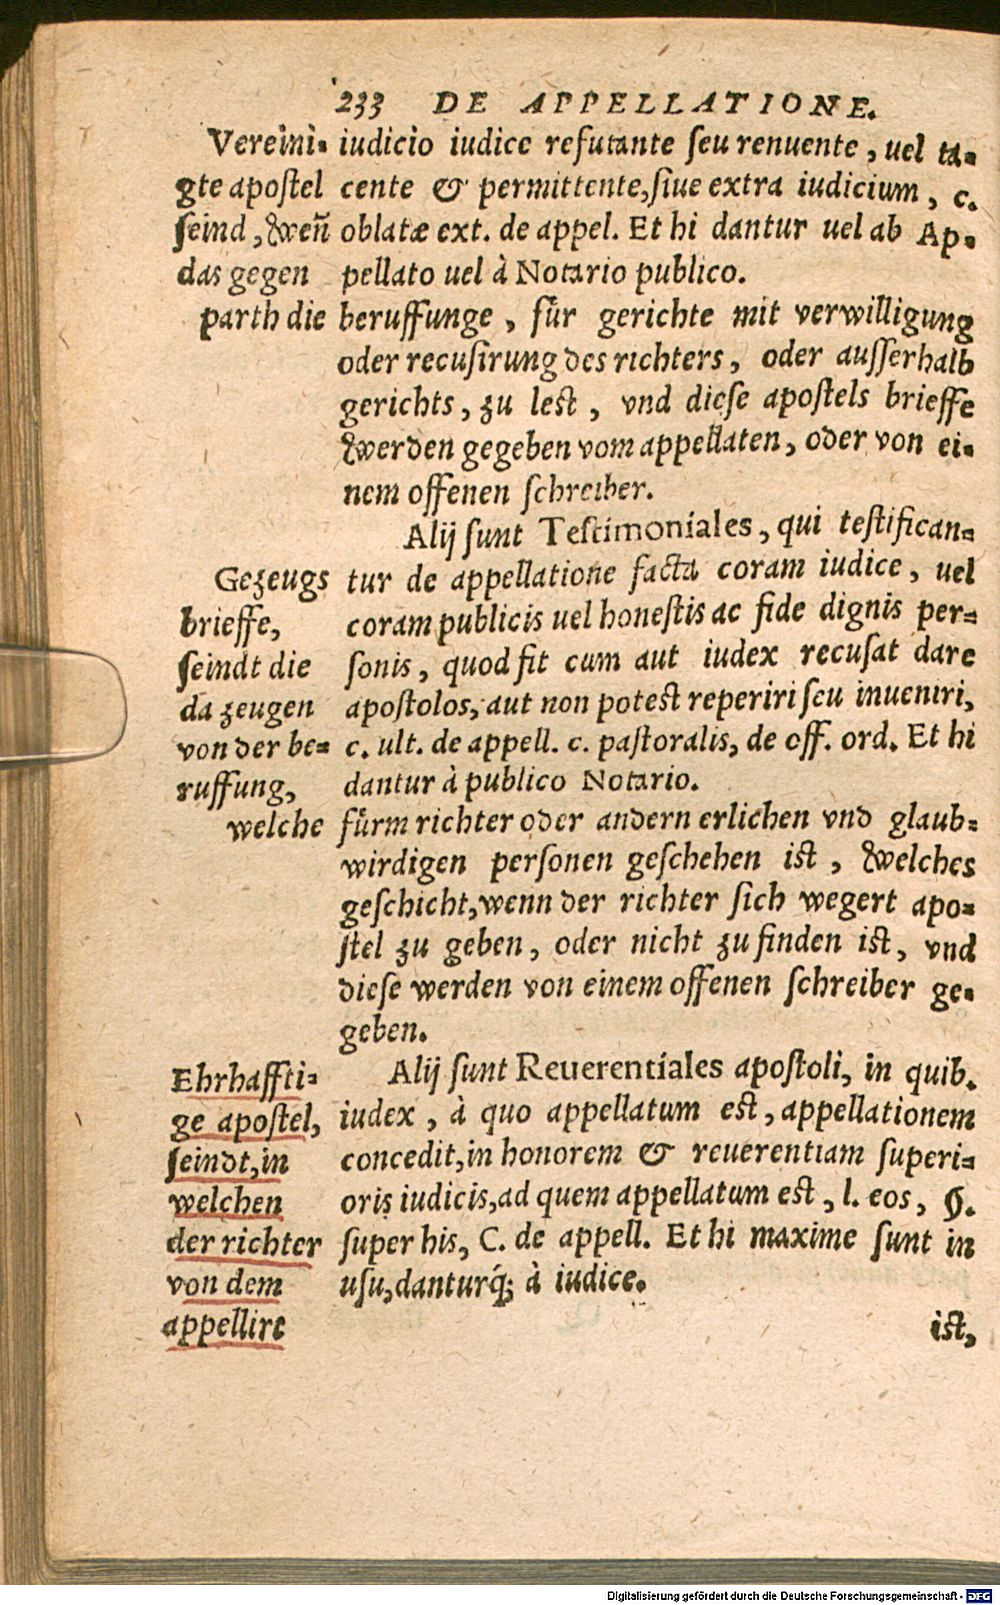 233 DE APPELLATIONE.
Vereini- iudicio iudice refutante ſeu renuente, uel ta-
gte apoſtel cente & permittente, ſiue extra iudicium, c.
ſeind, wen̄ oblatæ ext. de appel. Et hi dantur uel ab Ap-
das gegen pellato uel à Notario publico.
parth die beruffunge, fůr gerichte mit verwilligung
oder recuſirung des richters, oder auſſerhalb
gerichts, zu leſt, vnd dieſe apoſtels brieffe
werden gegeben vom appellaten, oder von ei-
nem offenen ſchreiber.
Alij ſunt Teſtimoniales, qui teſtifican-
Gezeugs tur de appellatione facta coram iudice, uel
brieffe, coram publicis uel honeſtis ac fide dignis per-
ſeindt die ſonis, quod fit cum aut iudex recuſat dare
da zeugen apoſtolos, aut non poteſt reperiri ſeu inueniri,
von der be- c. ult. de appell. c. paſtoralis, de off. ord. Et hi
ruffung, dantur à publico Notario.
welche fůrm richter oder andern erlichen vnd glaub-
wirdigen perſonen geſchehen iſt, welches
geſchicht, wenn der richter ſich wegert apo-
ſtel zu geben, oder nicht zu finden iſt, vnd
dieſe werden von einem offenen ſchreiber ge-
geben.
Ehrhaffti- Alij ſunt Reuerentiales apoſtoli, in quib.
ge apoſtel, iudex, à quo appellatum eſt, appellationem
ſeindt, in concedit, in honorem & reuerentiam ſuperi-
welchen oris iudicis, ad quem appellatum eſt, l. eos, §.
der richter ſuper his, C. de appell. Et hi maxime ſunt in
von dem uſu, danturq́; à iudice.
appellirt iſt,
Digitalisierung gefördert durch die Deutsche Forschungsgemeinschaft - DFG